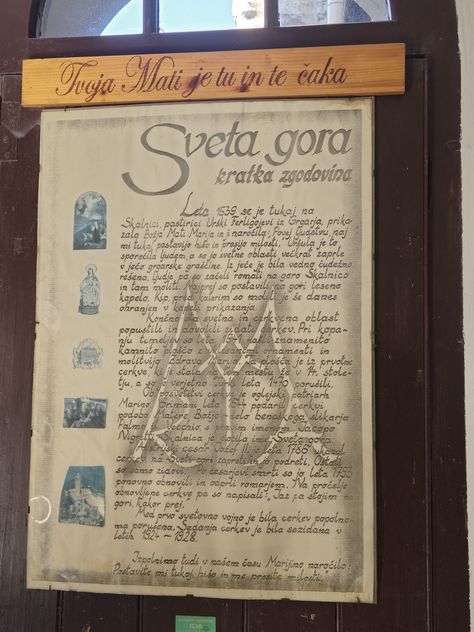 Tvoja Mati je tu in te čaka
Sveta gora
kratka zgodovina
Leta 1539 se je tukaj na
Skalnici, pastirici Urški Ferligojevi iz Grgarja, prika-
zala Božja Mati Marija in ji naročila: „Povej ljudstvu, naj
mi tukaj postavijo hišo in prosijo milosti." Uršula je to
sporočila ljudem, a so jo svetne oblasti večkrat zaprle
v ječo grgarske graščine. Iz ječe je bila vedno čudežno
rešena. Ljudje so začeli romati na goro Skalnico
in tam moliti. Najprej so postavili na gori leseno
kapelo. Kip, pred katerim so molili, je še danes
ohranjen v kapeli prikazanja.
Končno sta svetna in cerkvena oblast
popustili in dovolili zidati cerkev. Pri kopa-
nju temeljev so leta 1541 našli znamenito
kamnito ploščo z vklesanimi ornamenti in
molitvijo Zdrava Marija. Ta plošča je iz prvotne
cerkve, je stala na tem mestu že v 14. stole-
tju, a so jo verjetno Turki leta 1470 porušili.
Ob posvetitvi cerkve je oglejski patriarh
Marino Grimani leta 1544 podaril cerkvi
podobo Matere Božje - delo beneškega slikarja
Palma il Vecchio, s pravim imenom Jacopo
Nigretti. Skalnica je dobila ime Sveta gora.
Avstrijski cesar Jožef II. je leta 1786 ukazal
cerkev na Sveti gori zapreti in jo podreti. Ostali
so samo zidovi. Po cesarjevi smrti so jo leta 1793
ponovno obnovili in odprli romarjem. Na pročelje
obnovljene cerkve pa so napisali: „Jaz pa stojim na
gori, kakor prej.
Med prvo svetovno vojno je bila cerkev popolno-
ma porušena. Sedanja cerkev je bila sezidana v
letih 1924 – 1928.
Izpolnimo tudi v našem času Marijino naročilo:
Postavite mi tukaj hišo in me prosite milosti.